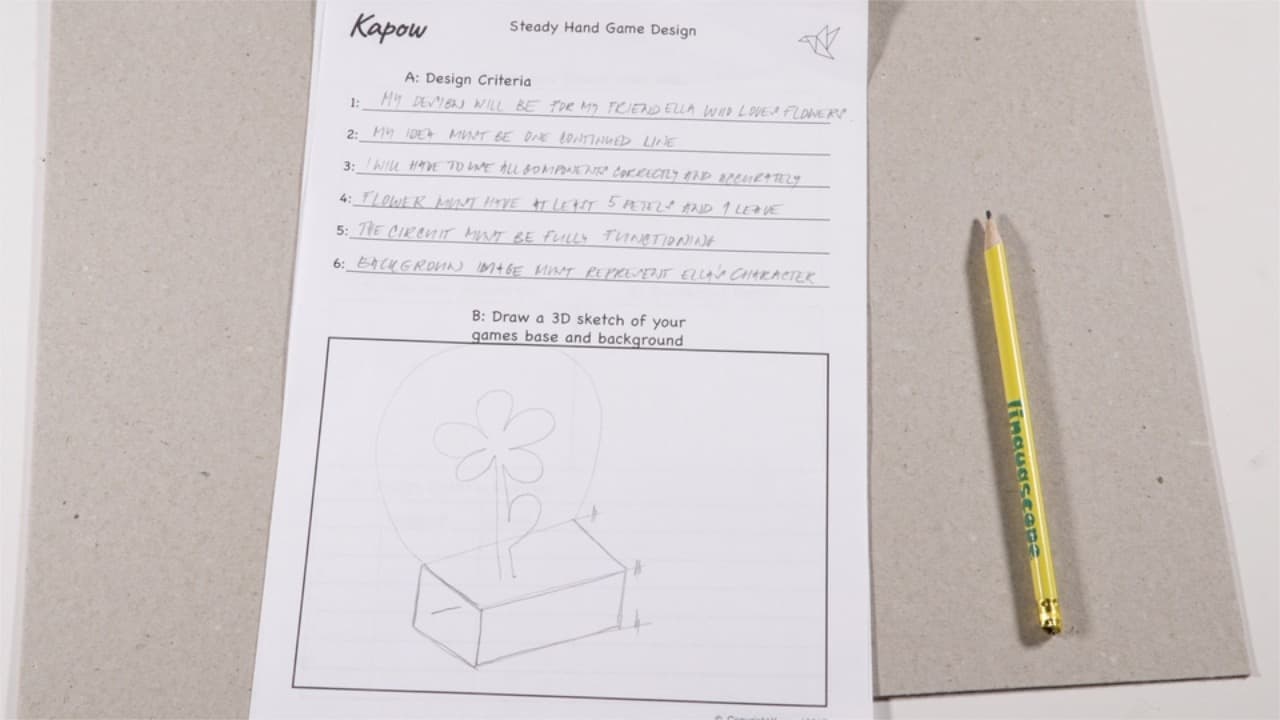 Kapow
Steady Hand Game Design
A: Design Criteria
1: MY DESIGN WILL BE FOR MY FRIEND ELLA WHO LOVES FLOWERS.
2: MY IDEA MUST BE ONE CONTINUED LINE
3: I WILL HAVE TO USE ALL COMPONENTS CORRECTLY AND ACCURATELY
4: FLOWER MUST HAVE AT LEAST 5 PETELS AND 1 LEAVE
5: THE CIRCUIT MUST BE FULLY FUNCTIONING
6: BACKGROUN IMAGE MUST REPRESENT ELLA'S CHARACTER
B: Draw a 3D sketch of your
games base and background
linguascope